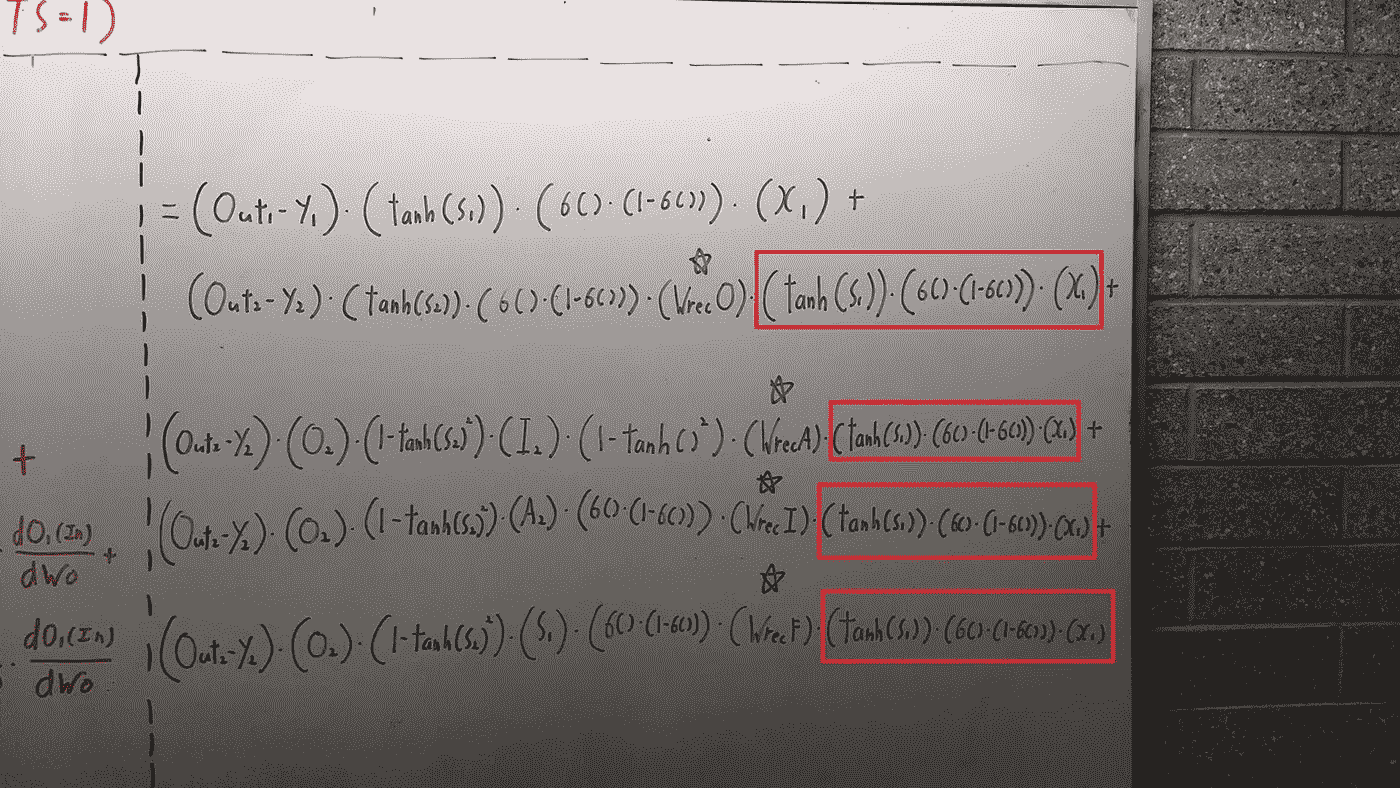 TS=1)
= (Out₁-Y₁)·(tanh(S₁))·(6()·(1-6()))·(X₁) +
☆
(Out₂-Y₂)·(tanh(S₂))·(6()·(1-6()))·(WrecO)·(tanh(S₁))·(6()·(1-6()))·(X₁) +
☆
(Out₂-Y₂)·(O₂)·(1-tanh(S₂)²)·(I₂)·(1-tanh()²)·(WrecA)·(tanh(S₁))·(6()·(1-6()))·(X₁) +
+
☆
(Out₂-Y₂)·(O₂)·(1-tanh(S₂)²)·(A₂)·(6()·(1-6()))·(WrecI)·(tanh(S₁))·(6()·(1-6()))·(X₁) +
dO₁(In)
dWo
+
☆
(Out₂-Y₂)·(O₂)·(1-tanh(S₂)²)·(S₁)·(6()·(1-6()))·(WrecF)·(tanh(S₁))·(6()·(1-6()))·(X₁)
· dO₁(In)
dWo